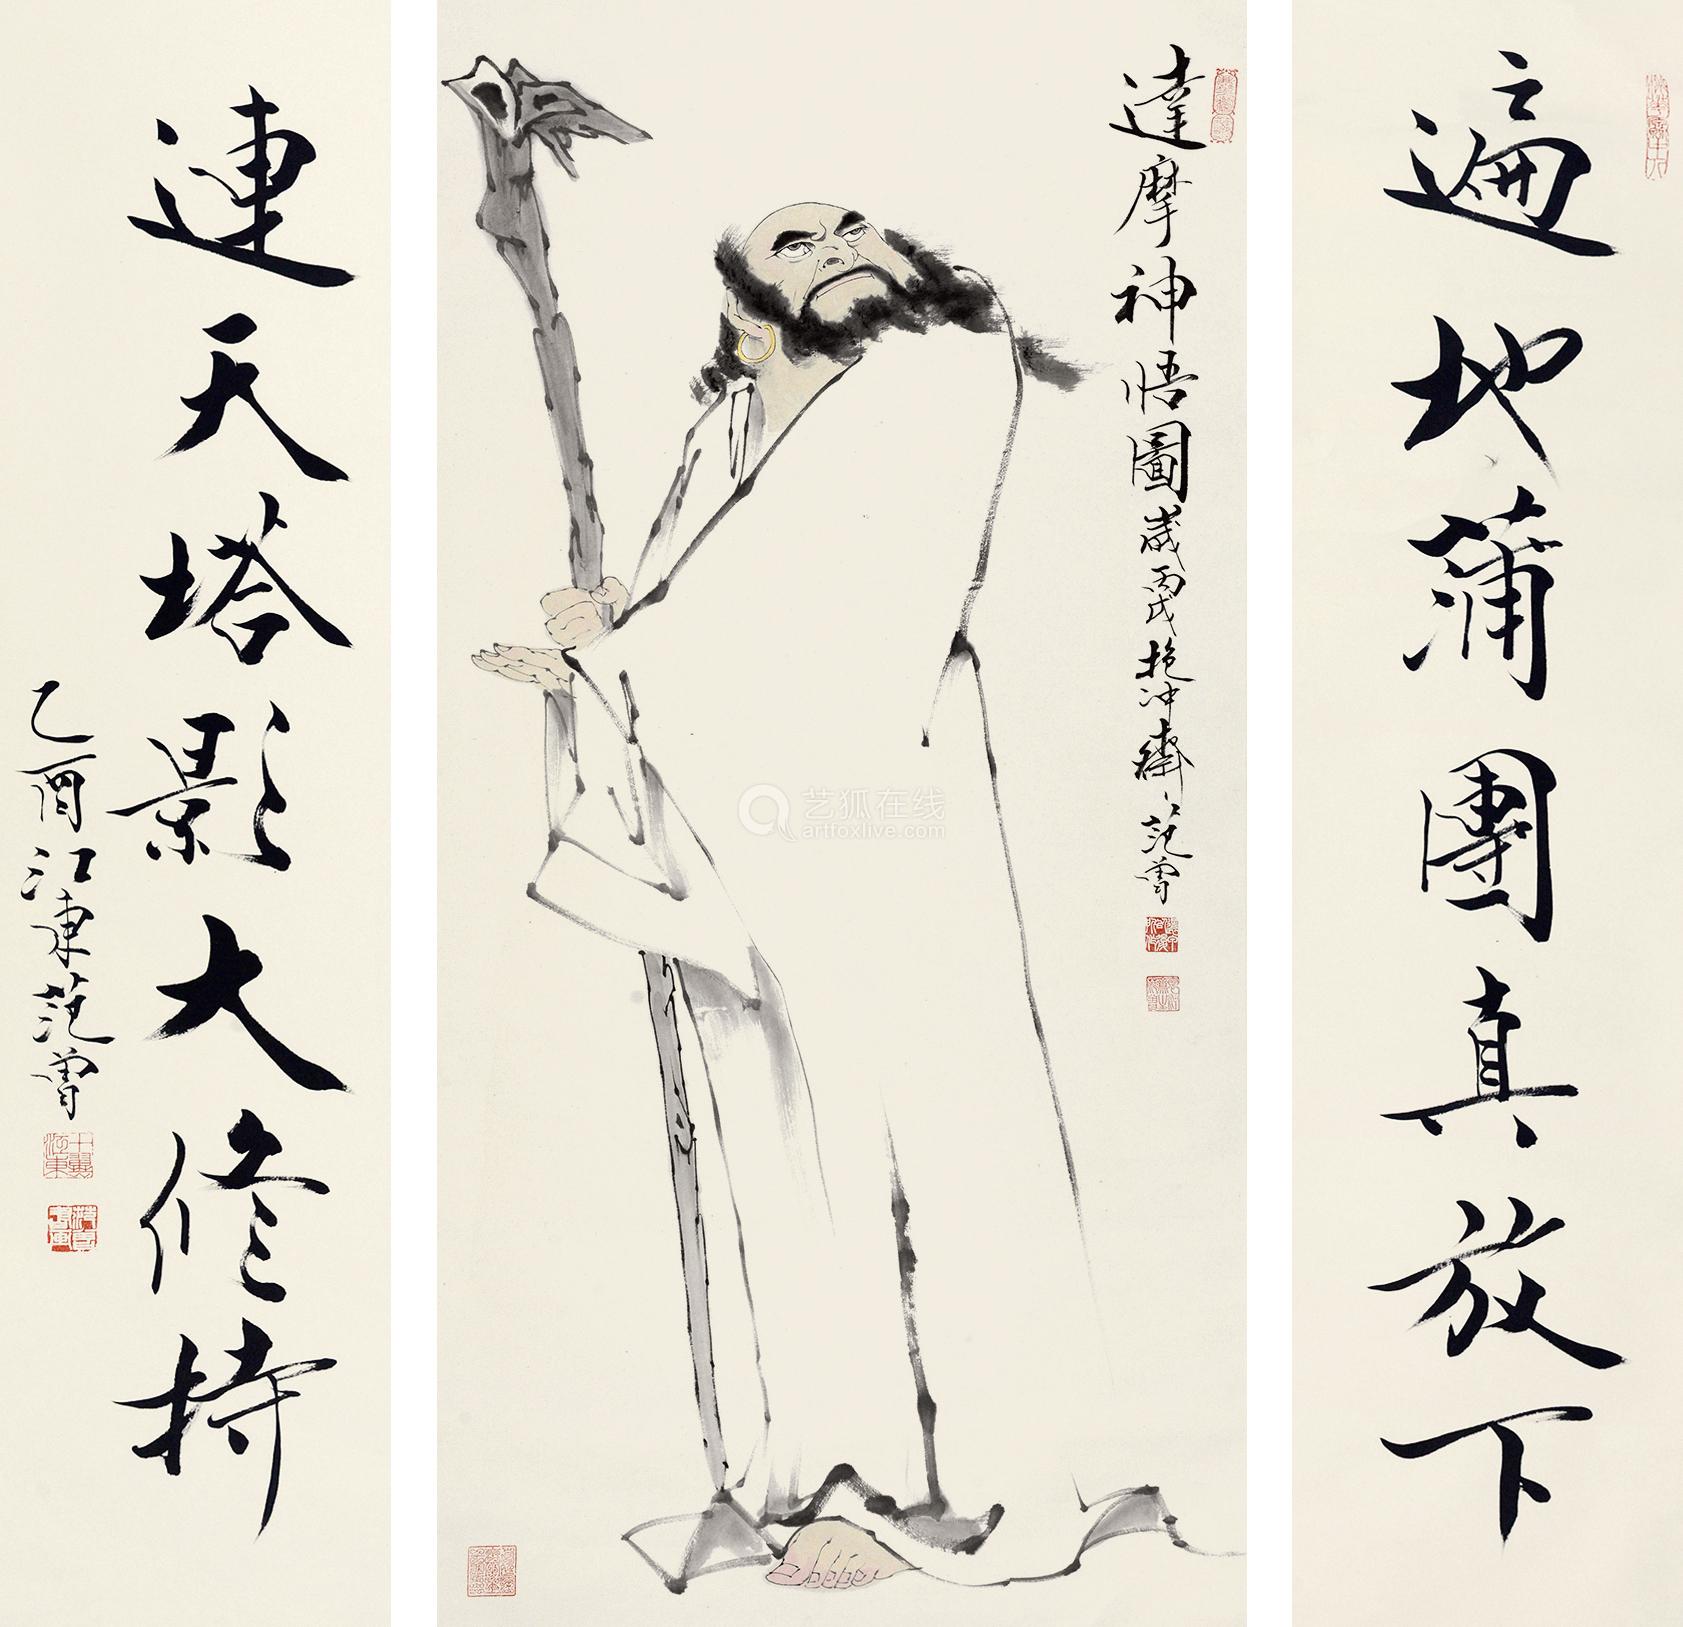 遍地蒲團真放下
達摩神悟圖歲丙戌抱沖齋、范曾
連天塔影大修持
乙酉江東范曾
艺狐在线
artfoxlive.com